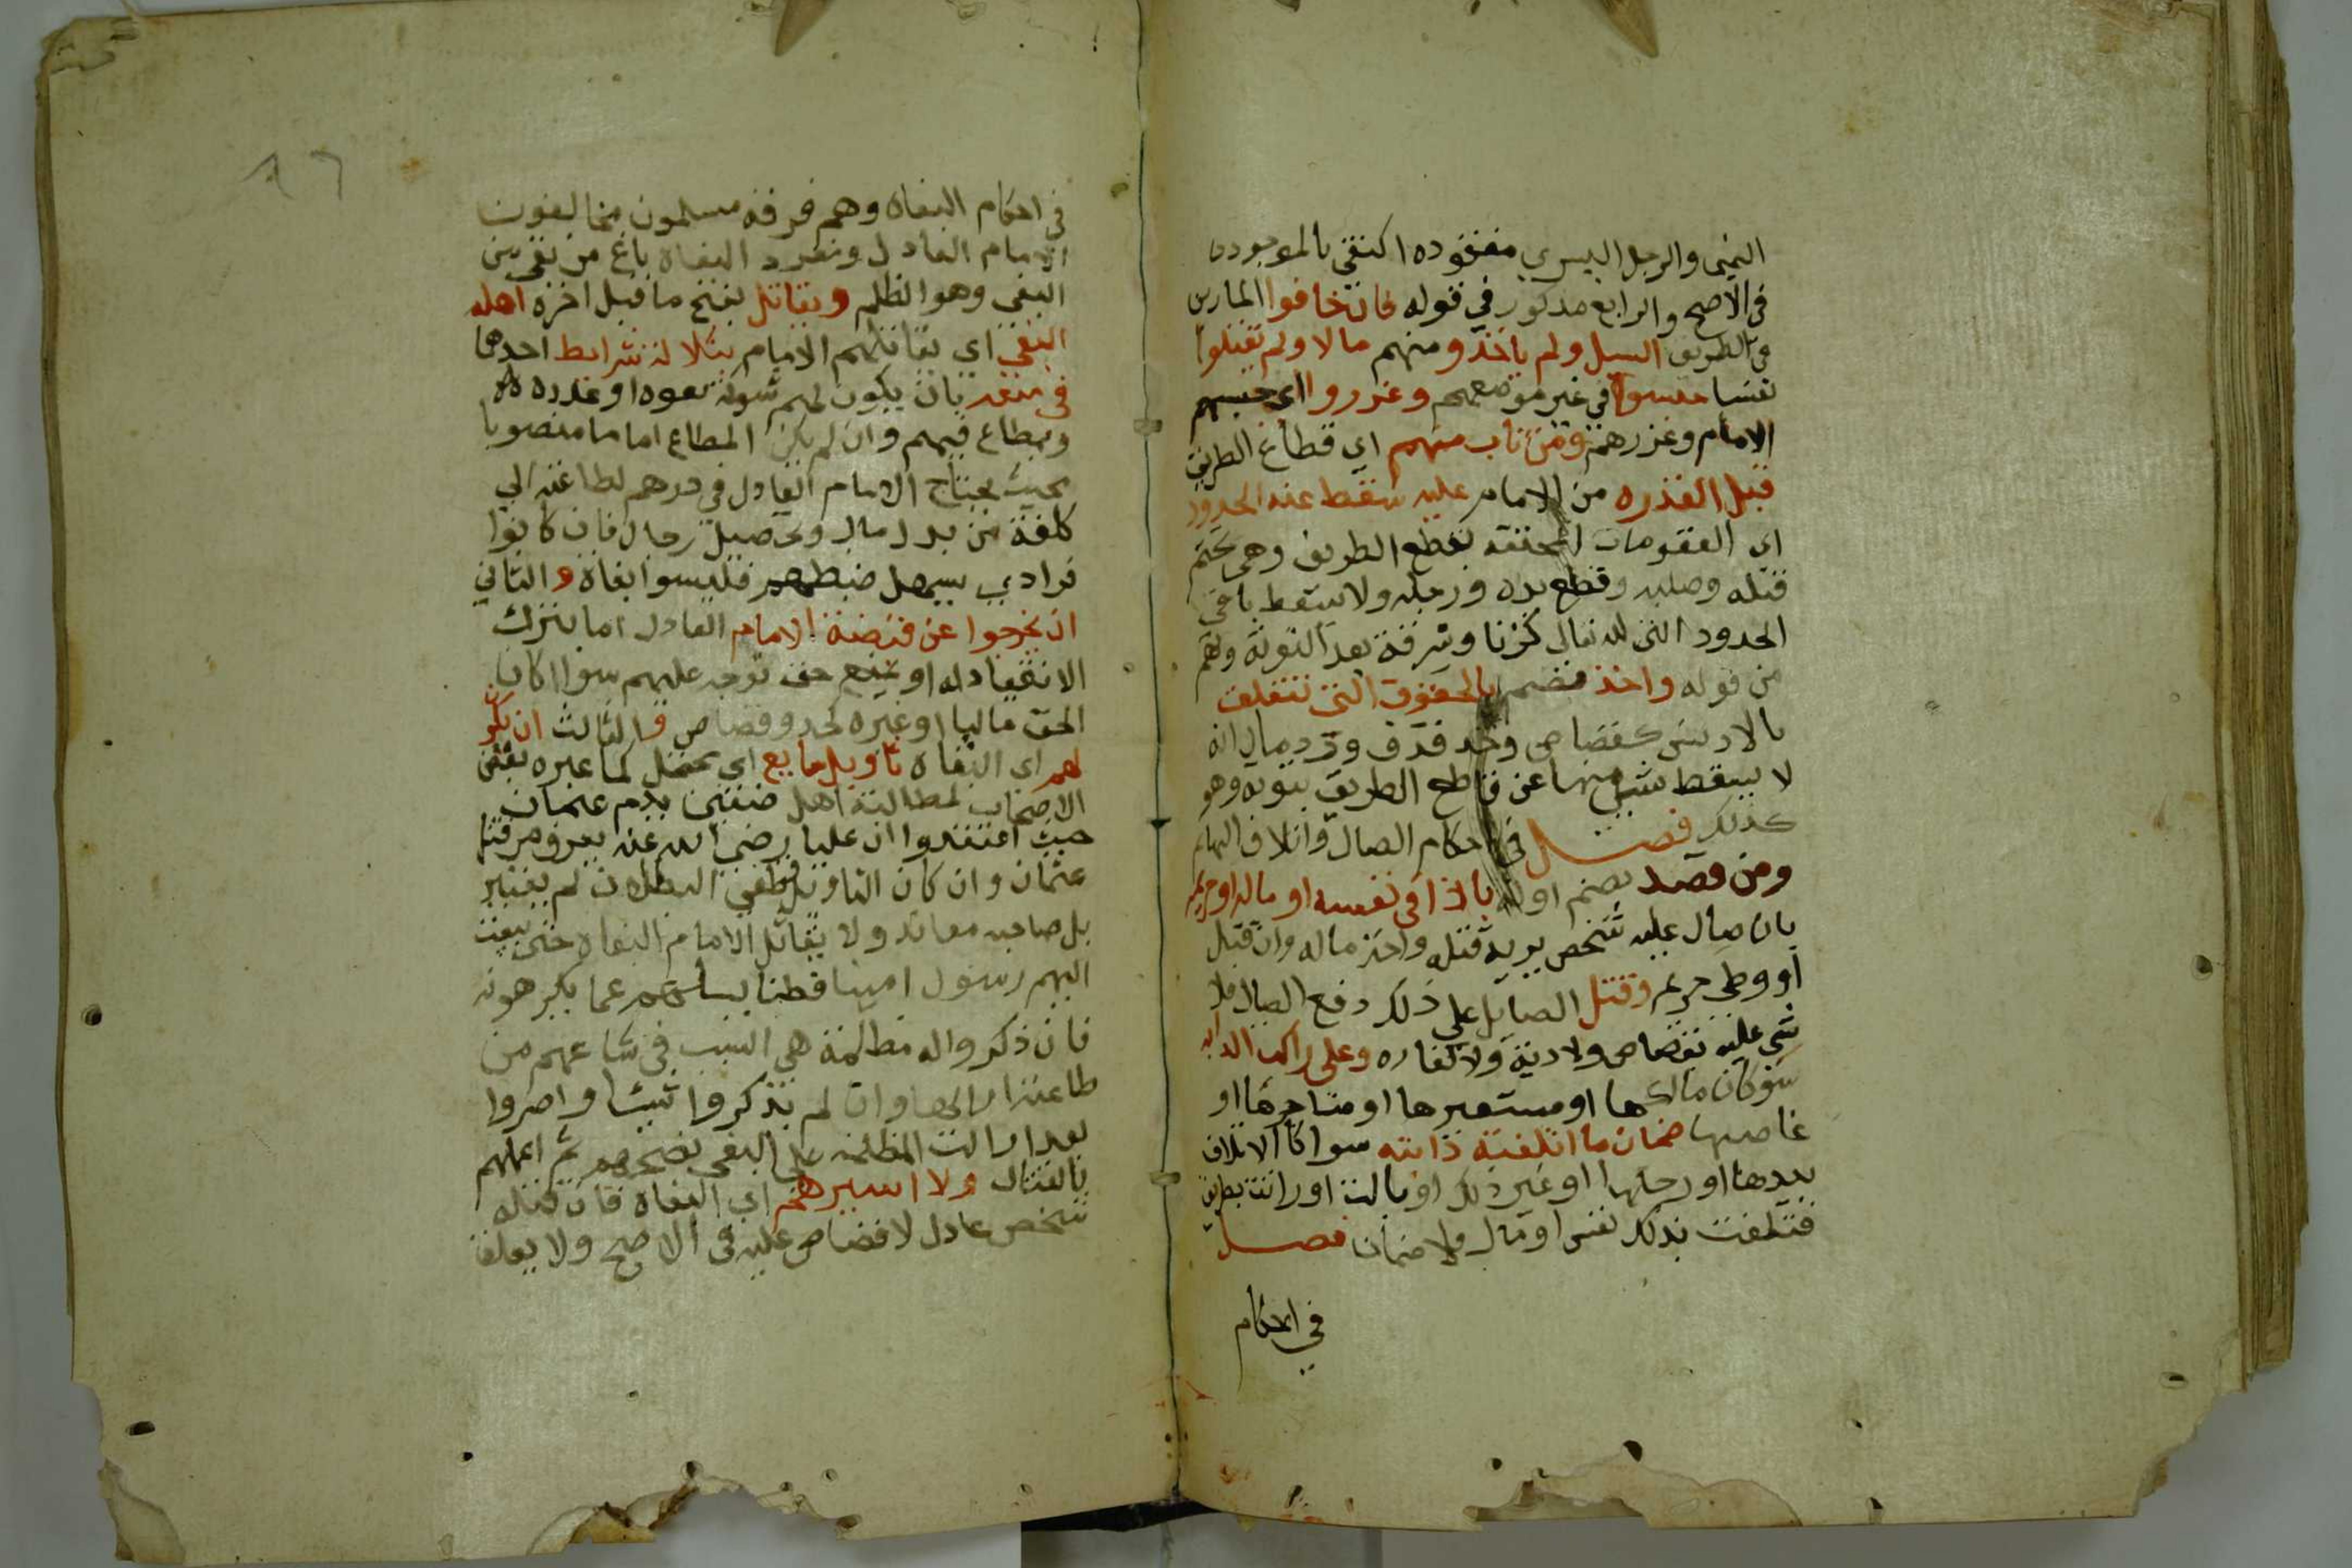 اليمنى والرجل اليسرى مفقوده اكتفي بالموجودة
في الاصح والرابع مذكور في قوله فان خافوا المارين
في الطريق السبل ولم ياخذو منهم مالا ولم يقتلوا
نفسا حبسوا في غير موضعهم وعزروا اي حبسهم
الامام وعزرهم ومن تاب منهم اي قطاع الطريق
قبل القدره من الامام عليه سقط عنه الحدود
اي العقوبات المختصة بقطع الطريق وهي تحتم
قتله وصلبه وقطع يده ورجله ولا يسقط باقي
الحدود التي لله تعالى كزنا وسرقة بعد التوبة وفهم
من قوله واخذ بضم بالحقوق التي تتعلق
بالادميين كقصاص وحد قذف ورد مال انه
لا يسقط شي منها عن قاطع الطريق بتوبه وهو
كذلك فصل في احكام الصيال واتلاف البهايم
ومن قصد بضم اوله باذا في نفسه او ماله او حريمه
بان صال عليه شخص يريد قتله واخذ ماله وان قتل
او وطي حريمه وقتل الصايل علي ذلك دفع الصيال فلا
شي عليه بقصاص ولا دية ولا كفاره وعلى راكب الدابه
سو كان مالكها او مستعيرها او مستاجرها او
غاصبها ضمان ما اتلفته دابته سوا كان الاتلاف
بيدها او رجلها او غير ذلك او بالت او راثت بطريق
فتلفت بذلك نفس او مال فلا ضمان فصل
في احكام
٨٦
في احكام البغاه وهم فرقه مسلمون مخالفون
الامام العادل ومفرد البغاة باغ من تغير من
البغى وهو الظلم ويقاتل بفتح ما قبل اخره اهله
البغي اي يقاتلهم الامام بثلاثة شرايط احدها
في منعه بان يكون لهم شوكة بقوه او عدده
وبمطاع فيهم وان لم يكن المطاع اماما منصوبا
بحيث يحتاج الامام العادل في ردهم لطاعته الي
كلفة من بدل مال وتحصيل رجال فان كانوا
فرادي يسهل ضبطهم فليسوا بغاة والثاني
ان يخرجوا عن قبضة الامام العادل اما بترك
الانقياد له او بمنع حق توجه عليهم سوا كان
الحق ماليا او غيره كحد وقصاص والثالث ان يكون
لهم اي البغاه تاويل سايغ اي محتمل كما عبر به بعض
الاصحاب كمطالبة اهل صفين بدم عثمان
حيث اعتقدوا ان عليا رضي الله عنه يعرف من قتل
عثمان وان كان التاويل قطعي البطلان لم يعتبر
بل صاحبه معاند ولا يقاتل الامام البغاه حتى يبعث
اليهم رسول امينا فطنا يسالهم عما يكرهونه
فان ذكروا له مظلمة هي السبب في امتناعهم من
طاعته ازالها وان لم يذكروا شيئا واصروا
بعد ازالت المظلمه على البغي نصحهم ثم اعلمهم
بالقتال ولا اسيرهم اي البغاه فان قتله
شخص عادل لا قصاص عليه في الاصح ولا يطلق